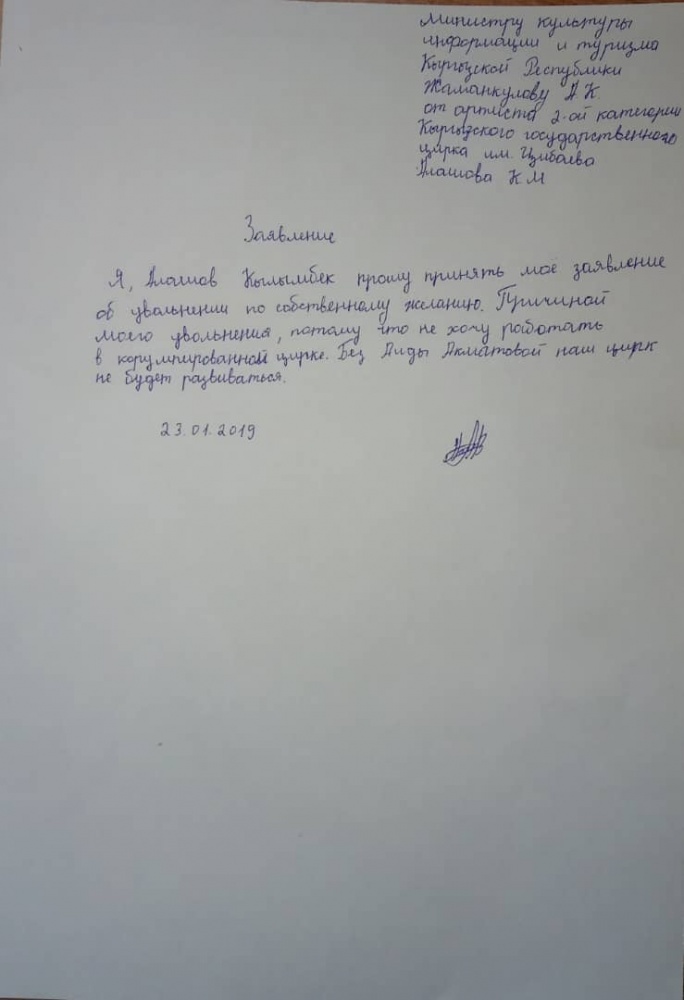 Министру культуры
информации и туризма
Кыргызской Республики
Жаманкулову А.К.
от артиста 2-ой категории
Кыргызского государственного
цирка им. Цибаева
Алашова К.М
Заявление
Я, Алашов Кылымбек прошу принять мое заявление
об увольнении по собственному желанию. Причиной
моего увольнения, потому что не хочу работать
в корумпированной цирке. Без Аиды Акматовой наш цирк
не будет развиваться.
23.01.2019